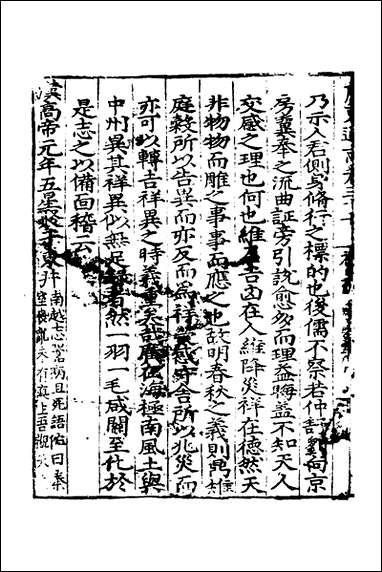 乃示人君側身脩行之標的也後儒不察若仲舒劉向京
房冀奉之流曲証旁引説愈多而理益晦盖不知天人
交感之理也何也維吉凶在人維降災祥在德然天
非物物而雕之事事而應之也故明春秋之義則雊雉
庭榖所以告異而亦反而爲祥感守舎所以兆災而
亦可以轉吉祥異之時義重矣哉廣徼海極南風土與
中州異其祥異似無足者然一羽一毛咸關至化於
是志之以備面稽云
漢高帝元年五星聚于東井南越志嚣病且死語佗曰秦